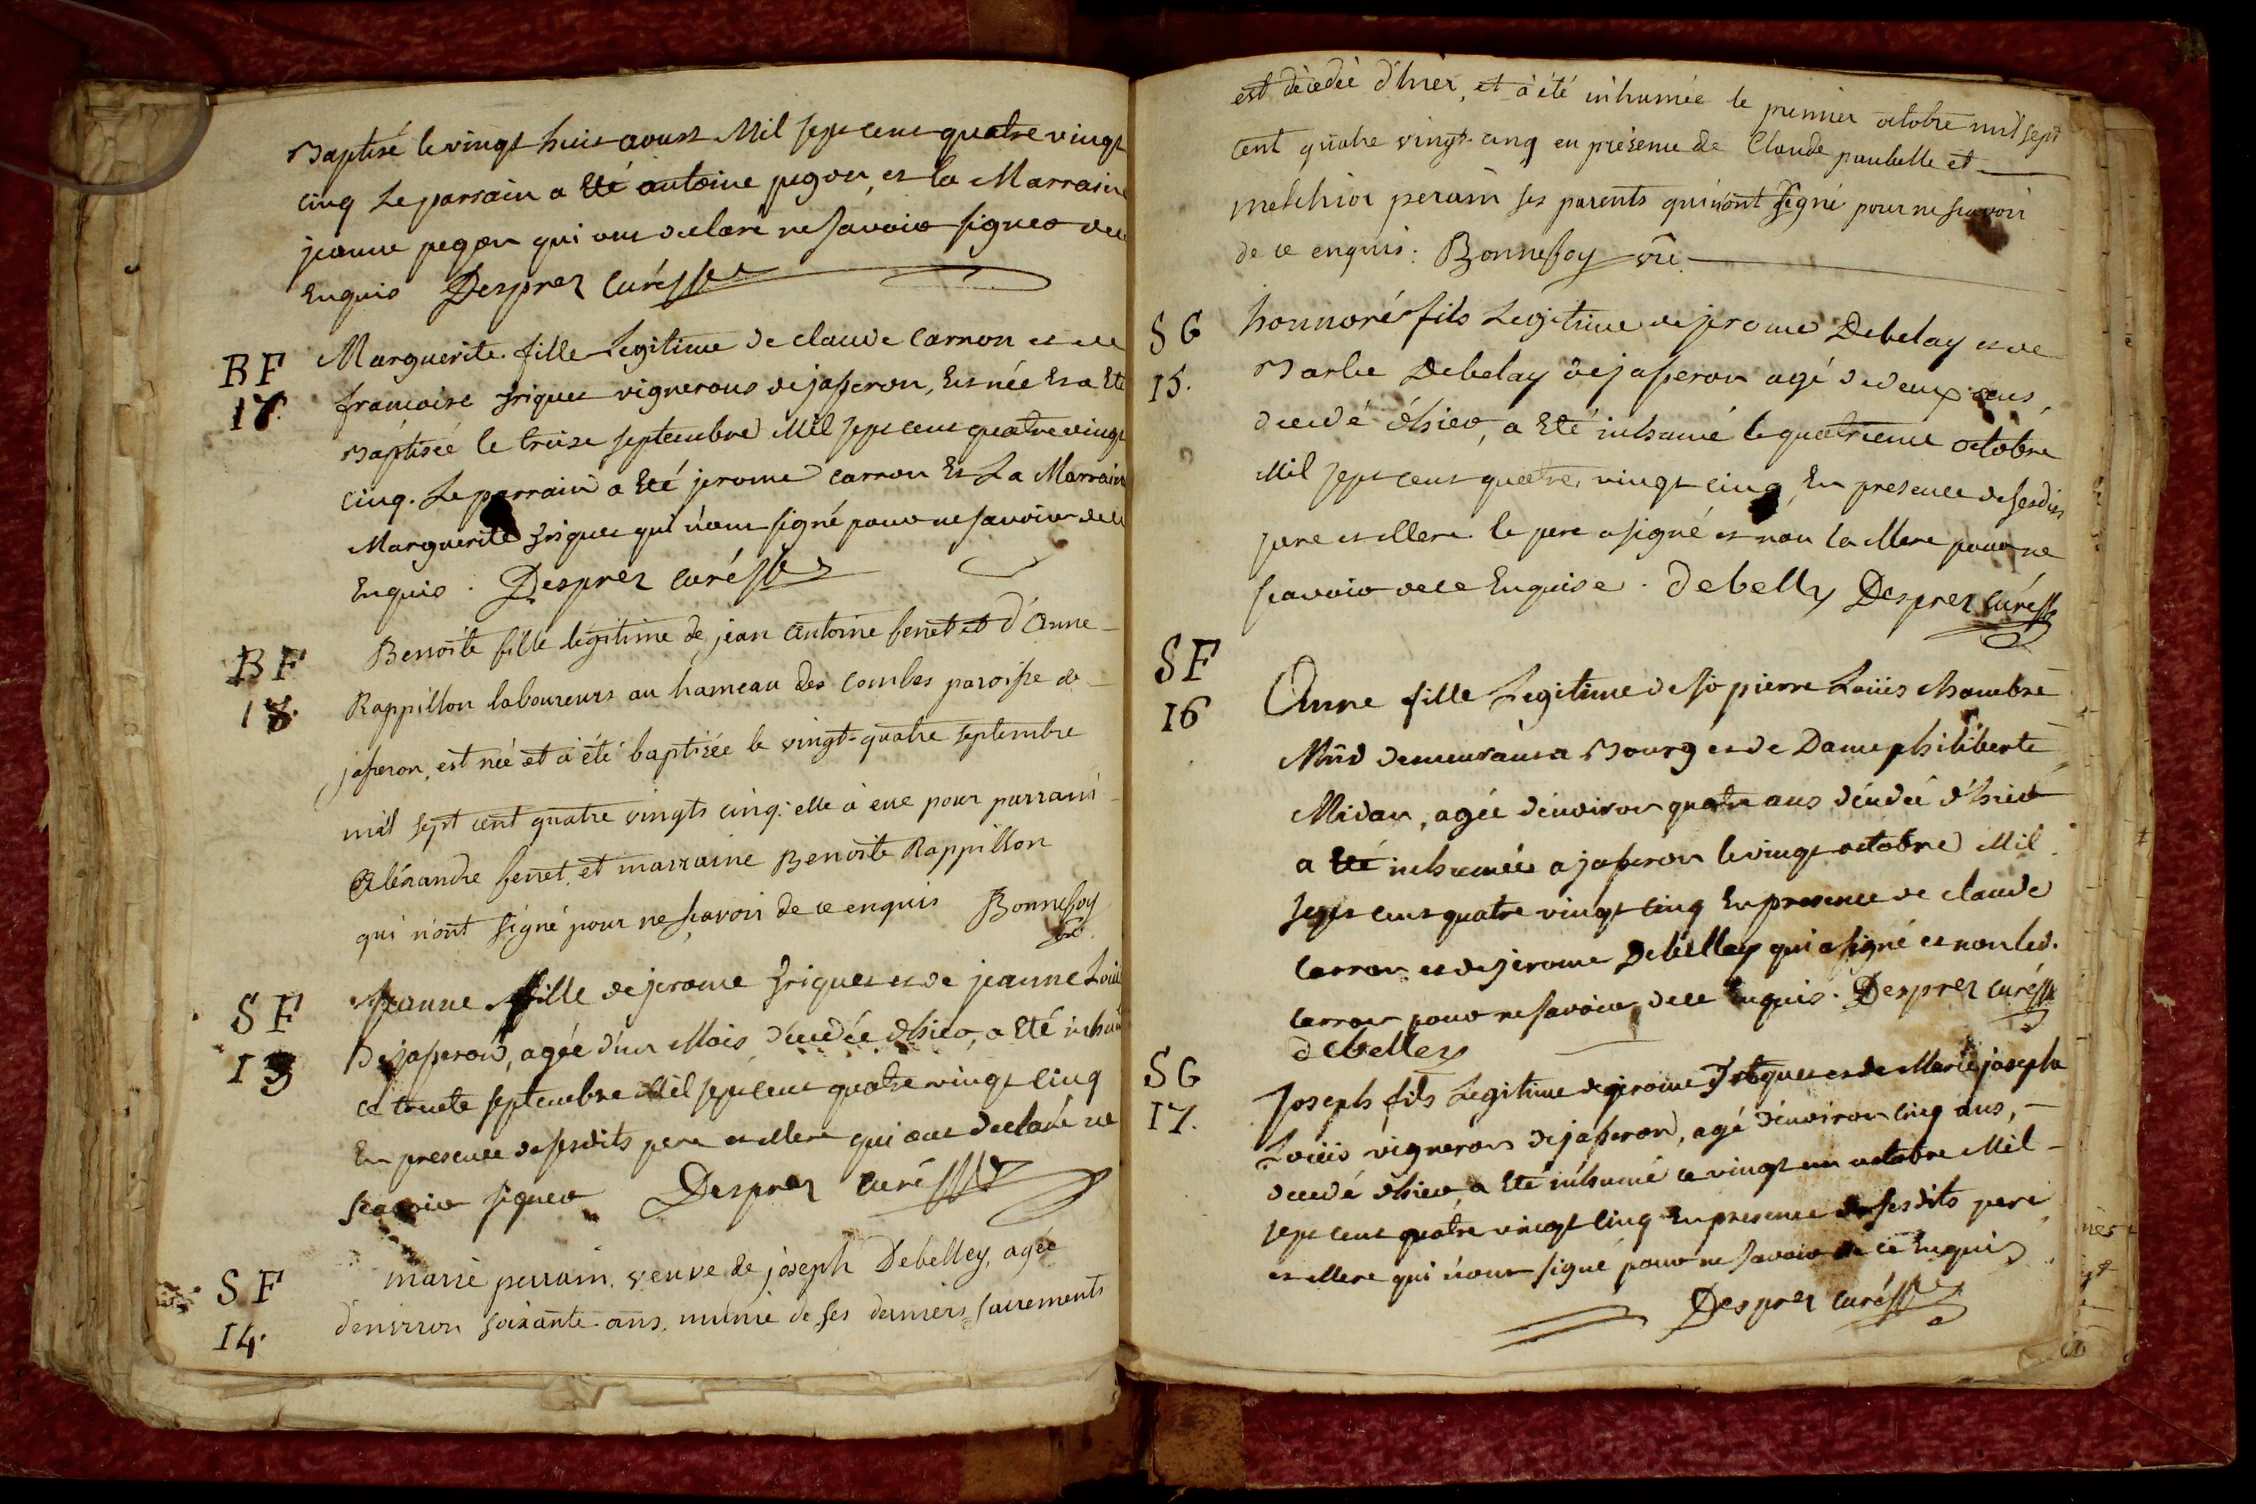 Baptisé le vingt huit aoust Mil sept cent quatre vingt
cinq Le parrain a Eté antoine pegon, et la Marraine
jeanne pegon qui ont declaré ne savoir signer de ce
Enquis Desprez Curé
BF
17.
Marguerite fille Legitime de claude Carron et de
francoise friquet vignerons de jasseron, Est née Et a Eté
Baptisée le treize septembre Mil sept cent quatre vingt
cinq. Le parrain a Eté jerome carron Et La Marraine
Marguerite friquet qui n'ont signé pour ne savoir de ce
Enquis. Desprez curé
BF
18.
Benoite fille légitime de jean Antoine fenet et d'Anne
Rappillon laboureurs au hameau des Combes paroisse de
jasseron, est née et à été baptisée le vingt-quatre septembre
mil sept cent quatre vingts cinq: elle à eue pour parrain
Aléxandre fenet, et marraine Benoite Rappillon
qui n'ont signé pour ne sçavoir de ce enquis Bonnefoy
vre
SF
13
Jeanne fille de jerome friquet et de jeanne Louis
de jasseron, agée d'un Mois, décedée d'hier, a Eté inhumé
ce trente septembre Mil sept cent quatre vingt cinq
En presence de sesdits pere et Mere qui ont declaré ne
scavoir signer Desprez curé
SF
14.
marie perrain, veuve de joseph Debelley, agée
d'environ soixante ans, munie de ses derniers sacrements
est décedée d'hier, et à été inhumée le premier octobre mil sept
cent quatre vingt-cinq en présence de Claude paubelle et
melchior perain ses parents qui n'ont signé pour ne scavoir
de ce enquis: Bonnefoy vre
SG
15.
honnoré fils Legitime de jerome Debelay et de
Marbe Debelay de jasseron agé de deux ans,
decedé d'hier, a Eté inhumé le quatrieme octobre
Mil sept cent quatre vingt cinq, En presence de sesdits
pere et Mere le pere a signé et non la Mere pour ne
scavoir de ce Enquise. Debelly Desprez Curé
SF
16
Anne fille Legitime de sr pierre Loüis chambre
Mnd demeurant a Bourg et de Dame philiberte
Midan, agée d'environ quatre ans décedée d'hier
a Eté inhumée a jasseron le vingt octobre Mil
sept cent quatre vingt cinq En presence de claude
Carron et de jerome Debelley qui a signé et non led.
Carron pour ne savoir de ce Enquis. Desprez curé
debelley
SG
17.
Joseph fils Legitime de jerome friquet et de Marie josepha
Loüis vignerons de jasseron, agé d'environ cinq ans,
decedé d'hier, a Eté inhumé ce vingt un octobre Mil
sept cent quatre vingt cinq En presence de sesdits pere
et Mere qui n'ont signé pour ne savoir de ce Enquis
Desprez curé